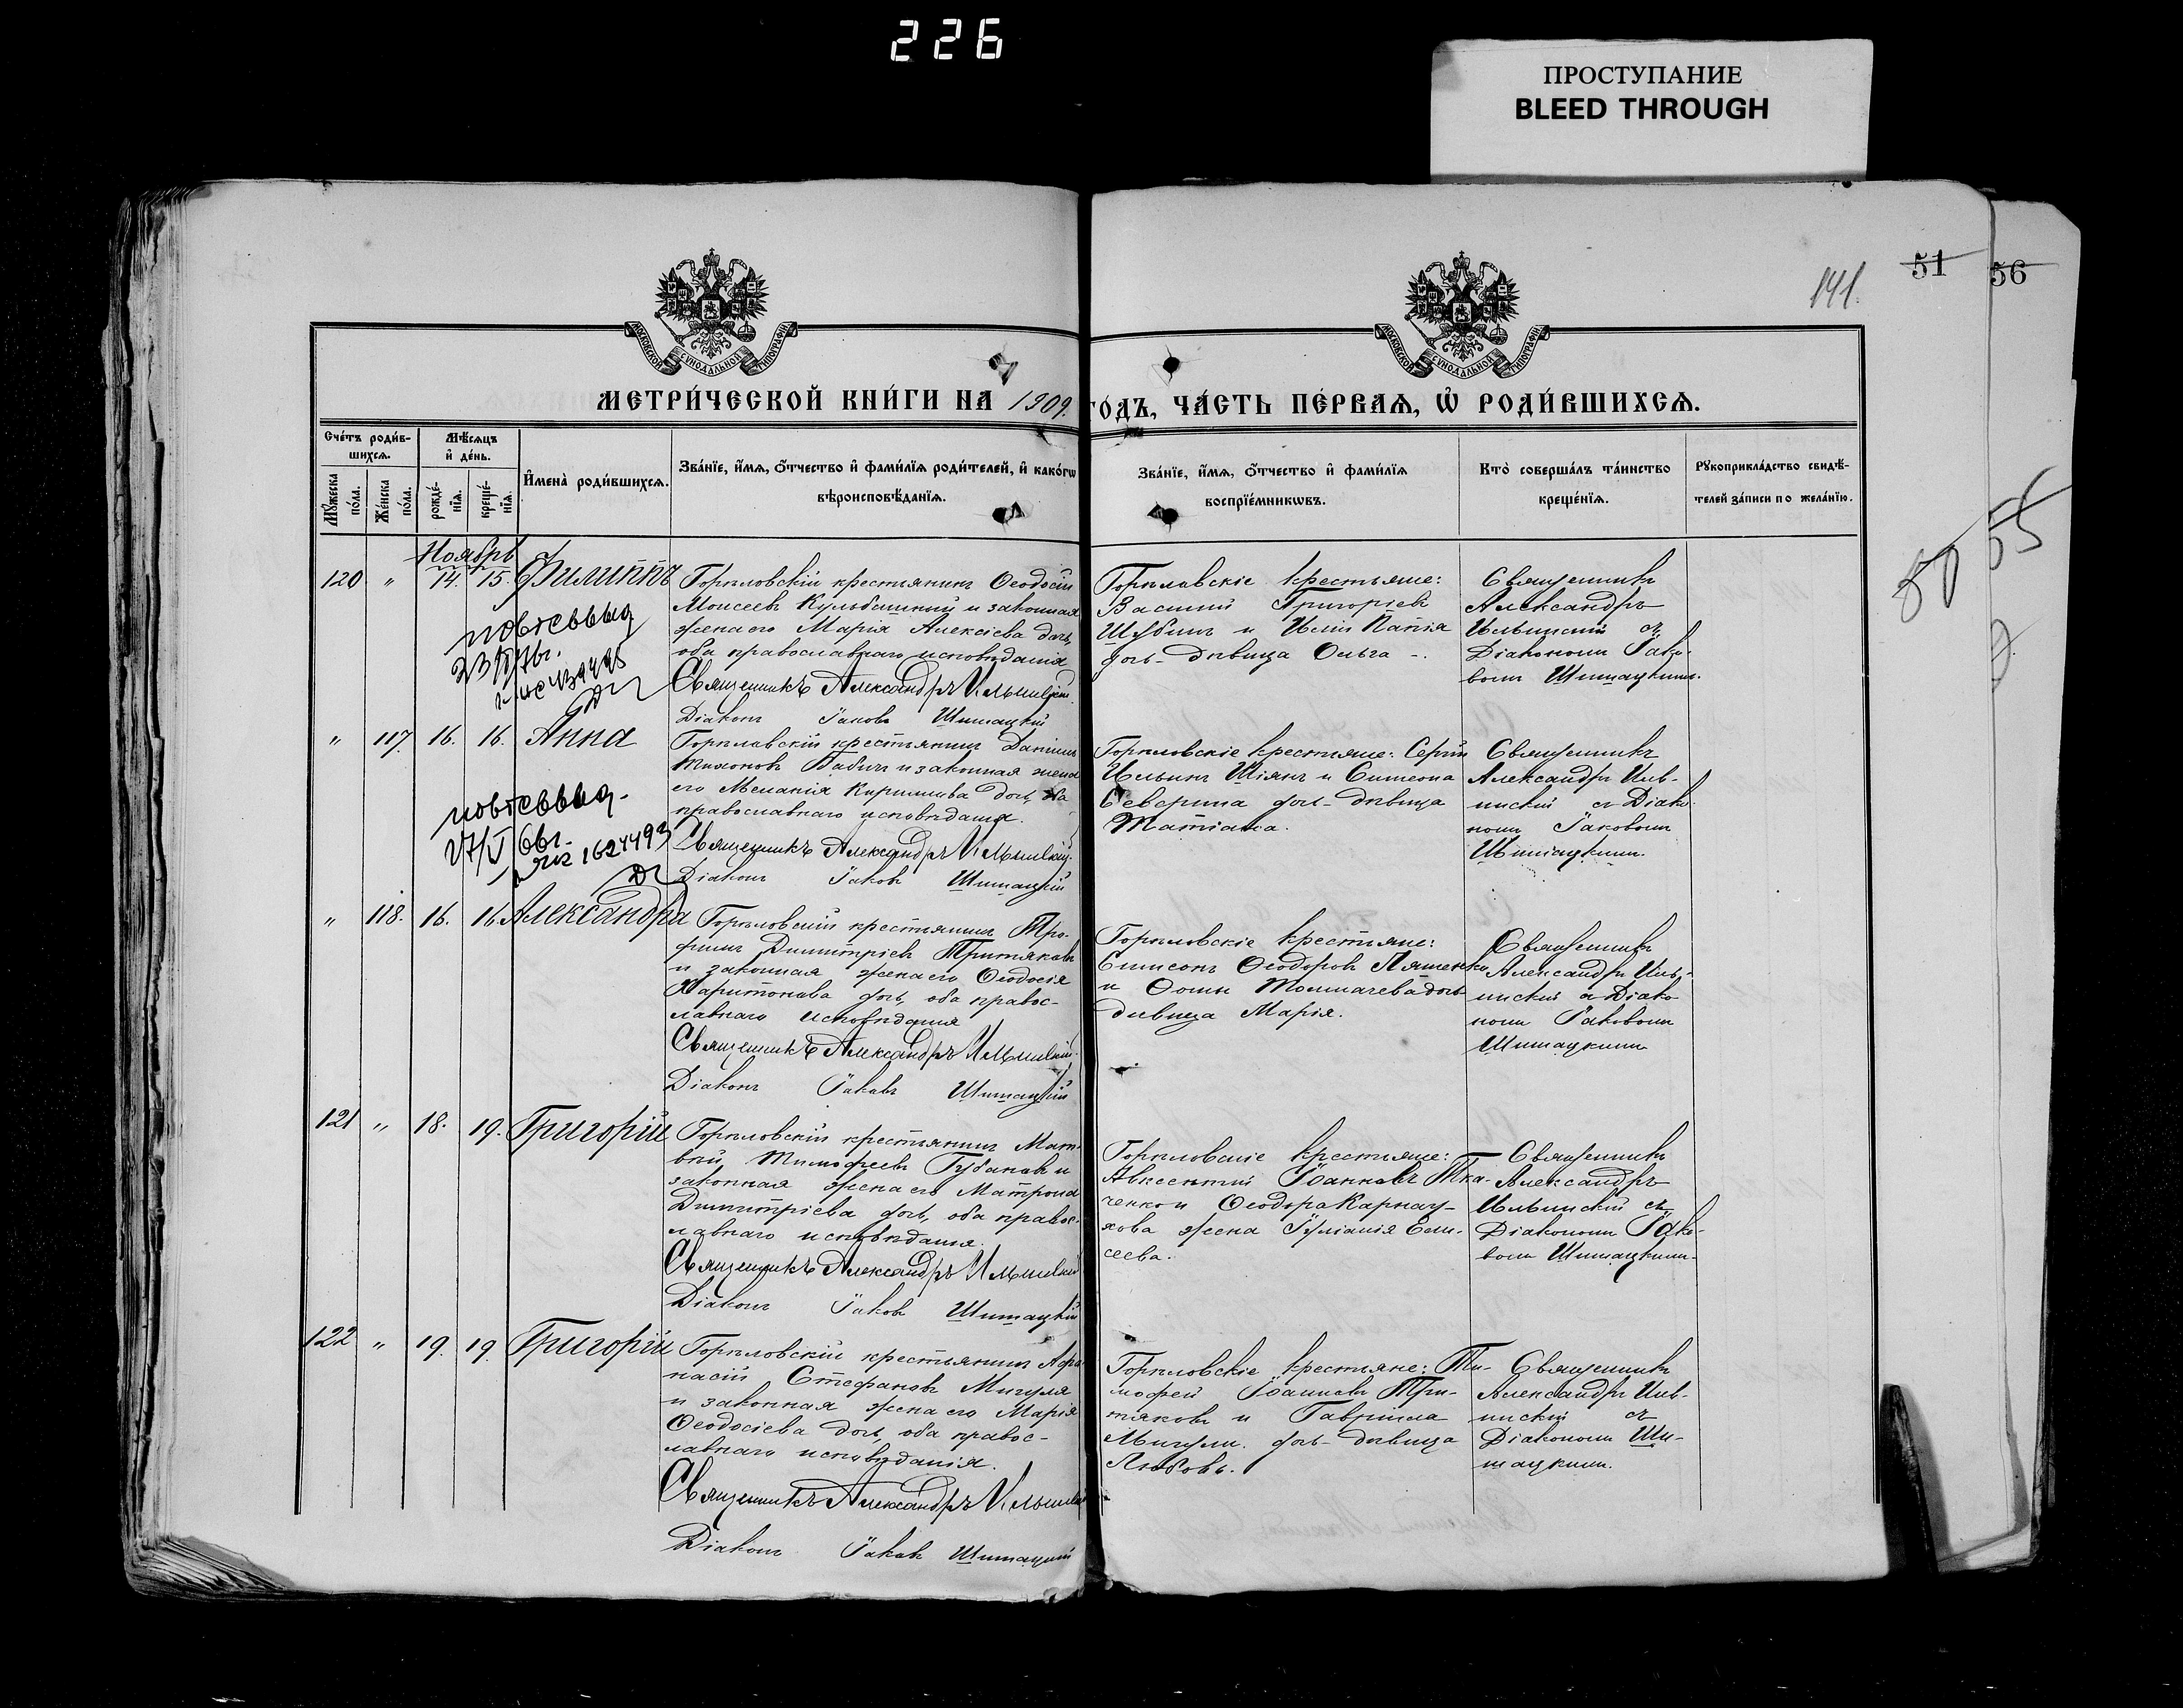 226
ПРОСТУПАНИЕ
BLEED THROUGH
51
56
141.
50
55
МОСКОВСКОЙ СѴНОДАЛЬНОЙ ТИПОГРАФІИ
МОСКОВСКОЙ СѴНОДАЛЬНОЙ ТИПОГРАФІИ
МЕТРИ́ЧЕСКОЙ КНИ́ГИ НА 1909.
ГО́ДЪ, ЧА́СТЬ ПЕ́РВАѦ, Ѡ҆ РОДИ́ВШИХСѦ.
Сче́тъ роди́в-
шихсѧ.
Мѣ́сѧцъ
и҆ де́нь.
Мꙋ́жеска
по́ла.
Же́нска
по́ла.
рожде́-
нїѧ.
креще́-
нїѧ.
И҆мена̀ роди́вшихсѧ.
Зва́нїе, и҆́мѧ, ѻ҆́тчество и҆ фами́лїѧ роди́телей, и҆ како́гѡ
вѣроисповѣ́данїѧ.
Зва́нїе, и҆́мѧ, ѻ҆́тчество и҆ фами́лїѧ
воспрїе́мникѡвъ.
Кто̀ соверша́лъ та́инство
креще́нїѧ.
Рꙋкоприкла́дство свидѣ́-
телей за́писи по жела́нїю.
Ноябрь
120 " 14. 15. Филиппъ
Горѣловскій крестьянинъ Ѳеодосій
Моисеевъ Кульбашный и законная
жена его Марія Алексіева дочь,
оба православнаго исповѣданія
Священникъ Александръ Ильинскій
Діаконъ Іаковъ Шишацкій
Горѣловскіе крестьяне:
Василій Григоріевъ
Шубинъ и Иліи
дочь-дѣвица Ольга -.
Священникъ
Александръ
Ильинскій съ
Діакономъ Іако-
вомъ Шишацкимъ.
" 117. 16. 16. Анна
Горѣловскій крестьянинъ Даніилъ
Тихоновъ Бабичъ и законная жена
его Меланія Кириллова дочь, оба
православнаго исповѣданія.
Священникъ Александръ Ильинскій.
Діаконъ Іаковъ Шишацкій
Горѣловскіе крестьяне: Сергій
Ильинъ Шіянъ и Симеона
Северина дочь-дѣвица
Татіана.
Священникъ
Александръ Иль-
инскій съ Діако-
номъ Іаковомъ
Шишацкимъ.
" 118. 16. 16. Александра
Горѣловскій крестьянинъ Тро-
фимъ Димитріевъ Тритяковъ
и законная жена его Ѳеодосія
Харитонова дочь, оба правос-
лавнаго исповѣданія
Священникъ Александръ Ильинскій.
Діаконъ Іаковъ Шишацкій
Горѣловскіе крестьяне:
Симеонъ Ѳеодоровъ Ляшенко
и Ѳомы Толмачева дочь
дѣвица Марія.
Священникъ
Александръ Иль-
инскій съ Діако-
номъ Іаковомъ
Шишацкимъ
121 " 18. 19. Григорій
Горѣловскій крестьянинъ Мат-
вѣй Тимофеевъ Губановъ и
законная жена его Матрона
Димитріева дочь, оба правос-
лавнаго исповѣданія.
Священникъ Александръ Ильинскій
Діаконъ Іаковъ Шишацкій
Горѣловскіе крестьяне:
Авксентій Іоанновъ Тка-
ченко и Ѳеодора Карнау-
хова жена Іуліанія Ели-
сеева.
Священникъ
Александръ
Ильинскій съ
Діакономъ Іако-
вомъ Шишацкимъ.
122 " 19. 19. Григорій
Горѣловскій крестьянинъ Афа-
насій Стефановъ Мигуля
и законная жена его Марія
Ѳеодосіева дочь, оба правос-
лавнаго исповѣданія.
Священникъ Александръ Ильинскій
Діаконъ Іаковъ Шишацкій
Горѣловскіе крестьяне: Ти-
мофей Іоанновъ Три-
тяковъ и Гавріила
Мигули дочь-дѣвица
Любовь.
Священникъ
Александръ Иль-
инскій съ
Діакономъ Ши-
шацкимъ.